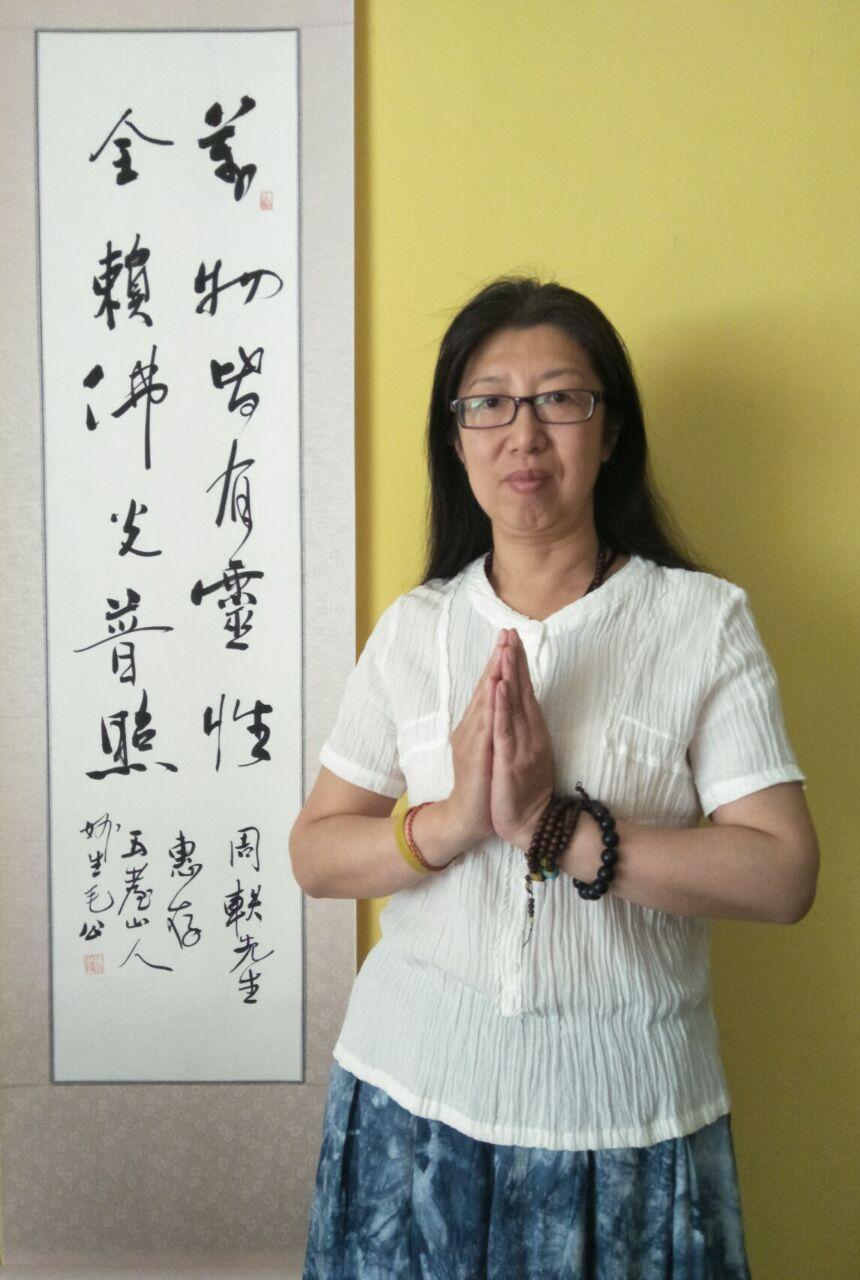 萬物皆有靈性
全賴佛光普照
周軼先生
惠存
五臺山人
妙生毛公